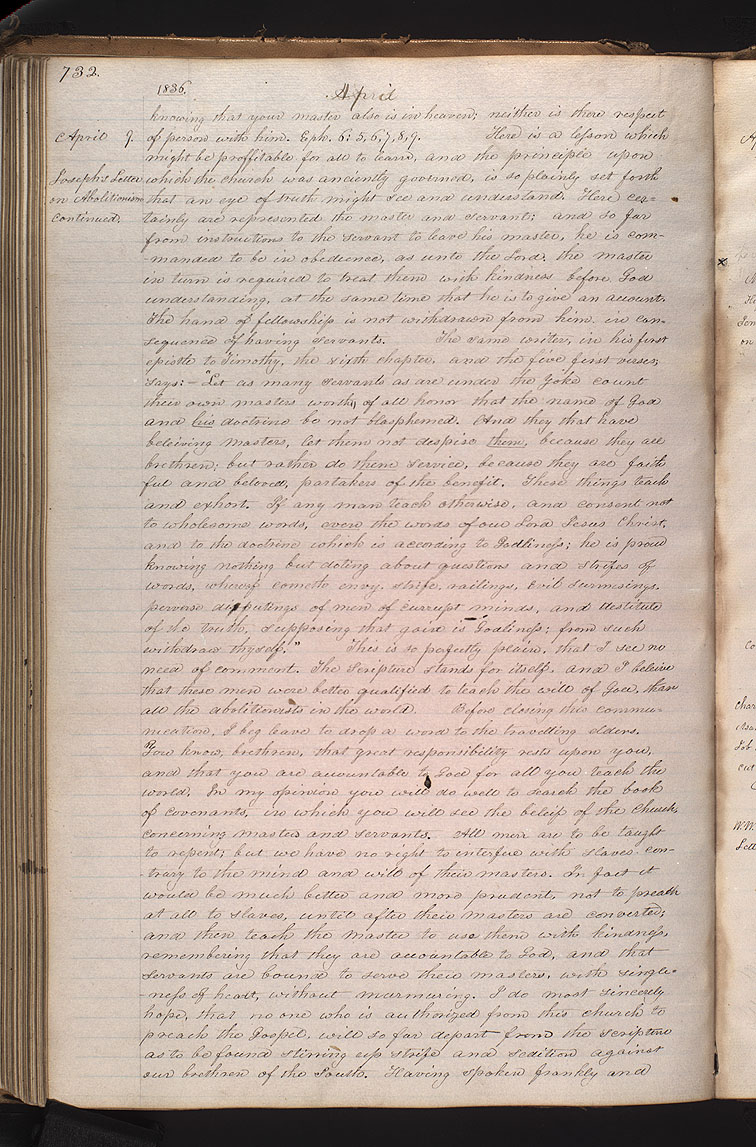 732.
1836.
April
knowing that your master also is in heaven; neither is there respect
April 9. of person with him. Eph. 6: 5, 6, 7, 8, 9. Here is a lesson which
might be proffitable for all to learn, and the principle upon
Joseph's Letter which the church was anciently governed, is so plainly set forth
on Abolitionism that an eye of truth might see and understand. Here cer=
continued. tainly are represented the master and servant; and so far
from instructions to the servant to leave his master, he is com-
manded to be in obedience, as unto the Lord, the master
in turn is required to treat them with kindness before God
understanding, at the same time that he is to give an account.
The hand of fellowship is not withdrawn from him in con-
sequence of having servants. The same writer, in his first
epistle to Timothy, the sixth chapter, and the five first verses,
says:— "Let as many servants as are under the yoke count
their own masters worthy of all honor that the name of God
and his doctrine be not blasphemed. And they that have
beleiving masters, let them not despise them, because they are
brethren; but rather do them service, because they are faith
ful and beloved, partakers of the benefit. These things teach
and exhort. If any man teach otherwise, and consent not
to wholesome words, even the words of our Lord Jesus Christ,
and to the doctrine which is according to Godliness; he is proud
knowing nothing but doting about questions and strifes of
words, whereof cometh envy, strife, railings, evil surmisings,
perverse disputings of men of currupt minds, and destitute
of the truth, supposing that gain is Godliness; from such
withdraw thyself." This is so perfectly plain, that I see no
need of comment. The Scripture stands for itself, and I beleive
that these men were better qualified to teach the will of God, than
all the abolitionists in the world. Before closing this commu-
nication, I beg leave to drop a word to the travelling elders.
You know, brethren, that great responsibility rests upon you,
and that you are accountable to God for all you teach the
world. In my opinion you will do well to search the book
of covenants, in which you will see the beleif of the Church,
concerning masters and servants. All men are to be taught
to repent; but we have no right to interfere with slaves con-
trary to the mind and will of their masters. In fact it
would be much better and more prudent, not to preach
at all to slaves, until after their masters are converted;
and then teach the master to use them with kindness,
remembering that they are accountable to God, and that
servants are bound to serve their masters, with single-
-ness of heart, without murmuring. I do most sincerely
hope, that no one who is authorized from this church to
preach the Gospel, will so far depart from the scripture
as to be found stirring up strife and sedition against
our brethren of the South. Having spoken frankly and